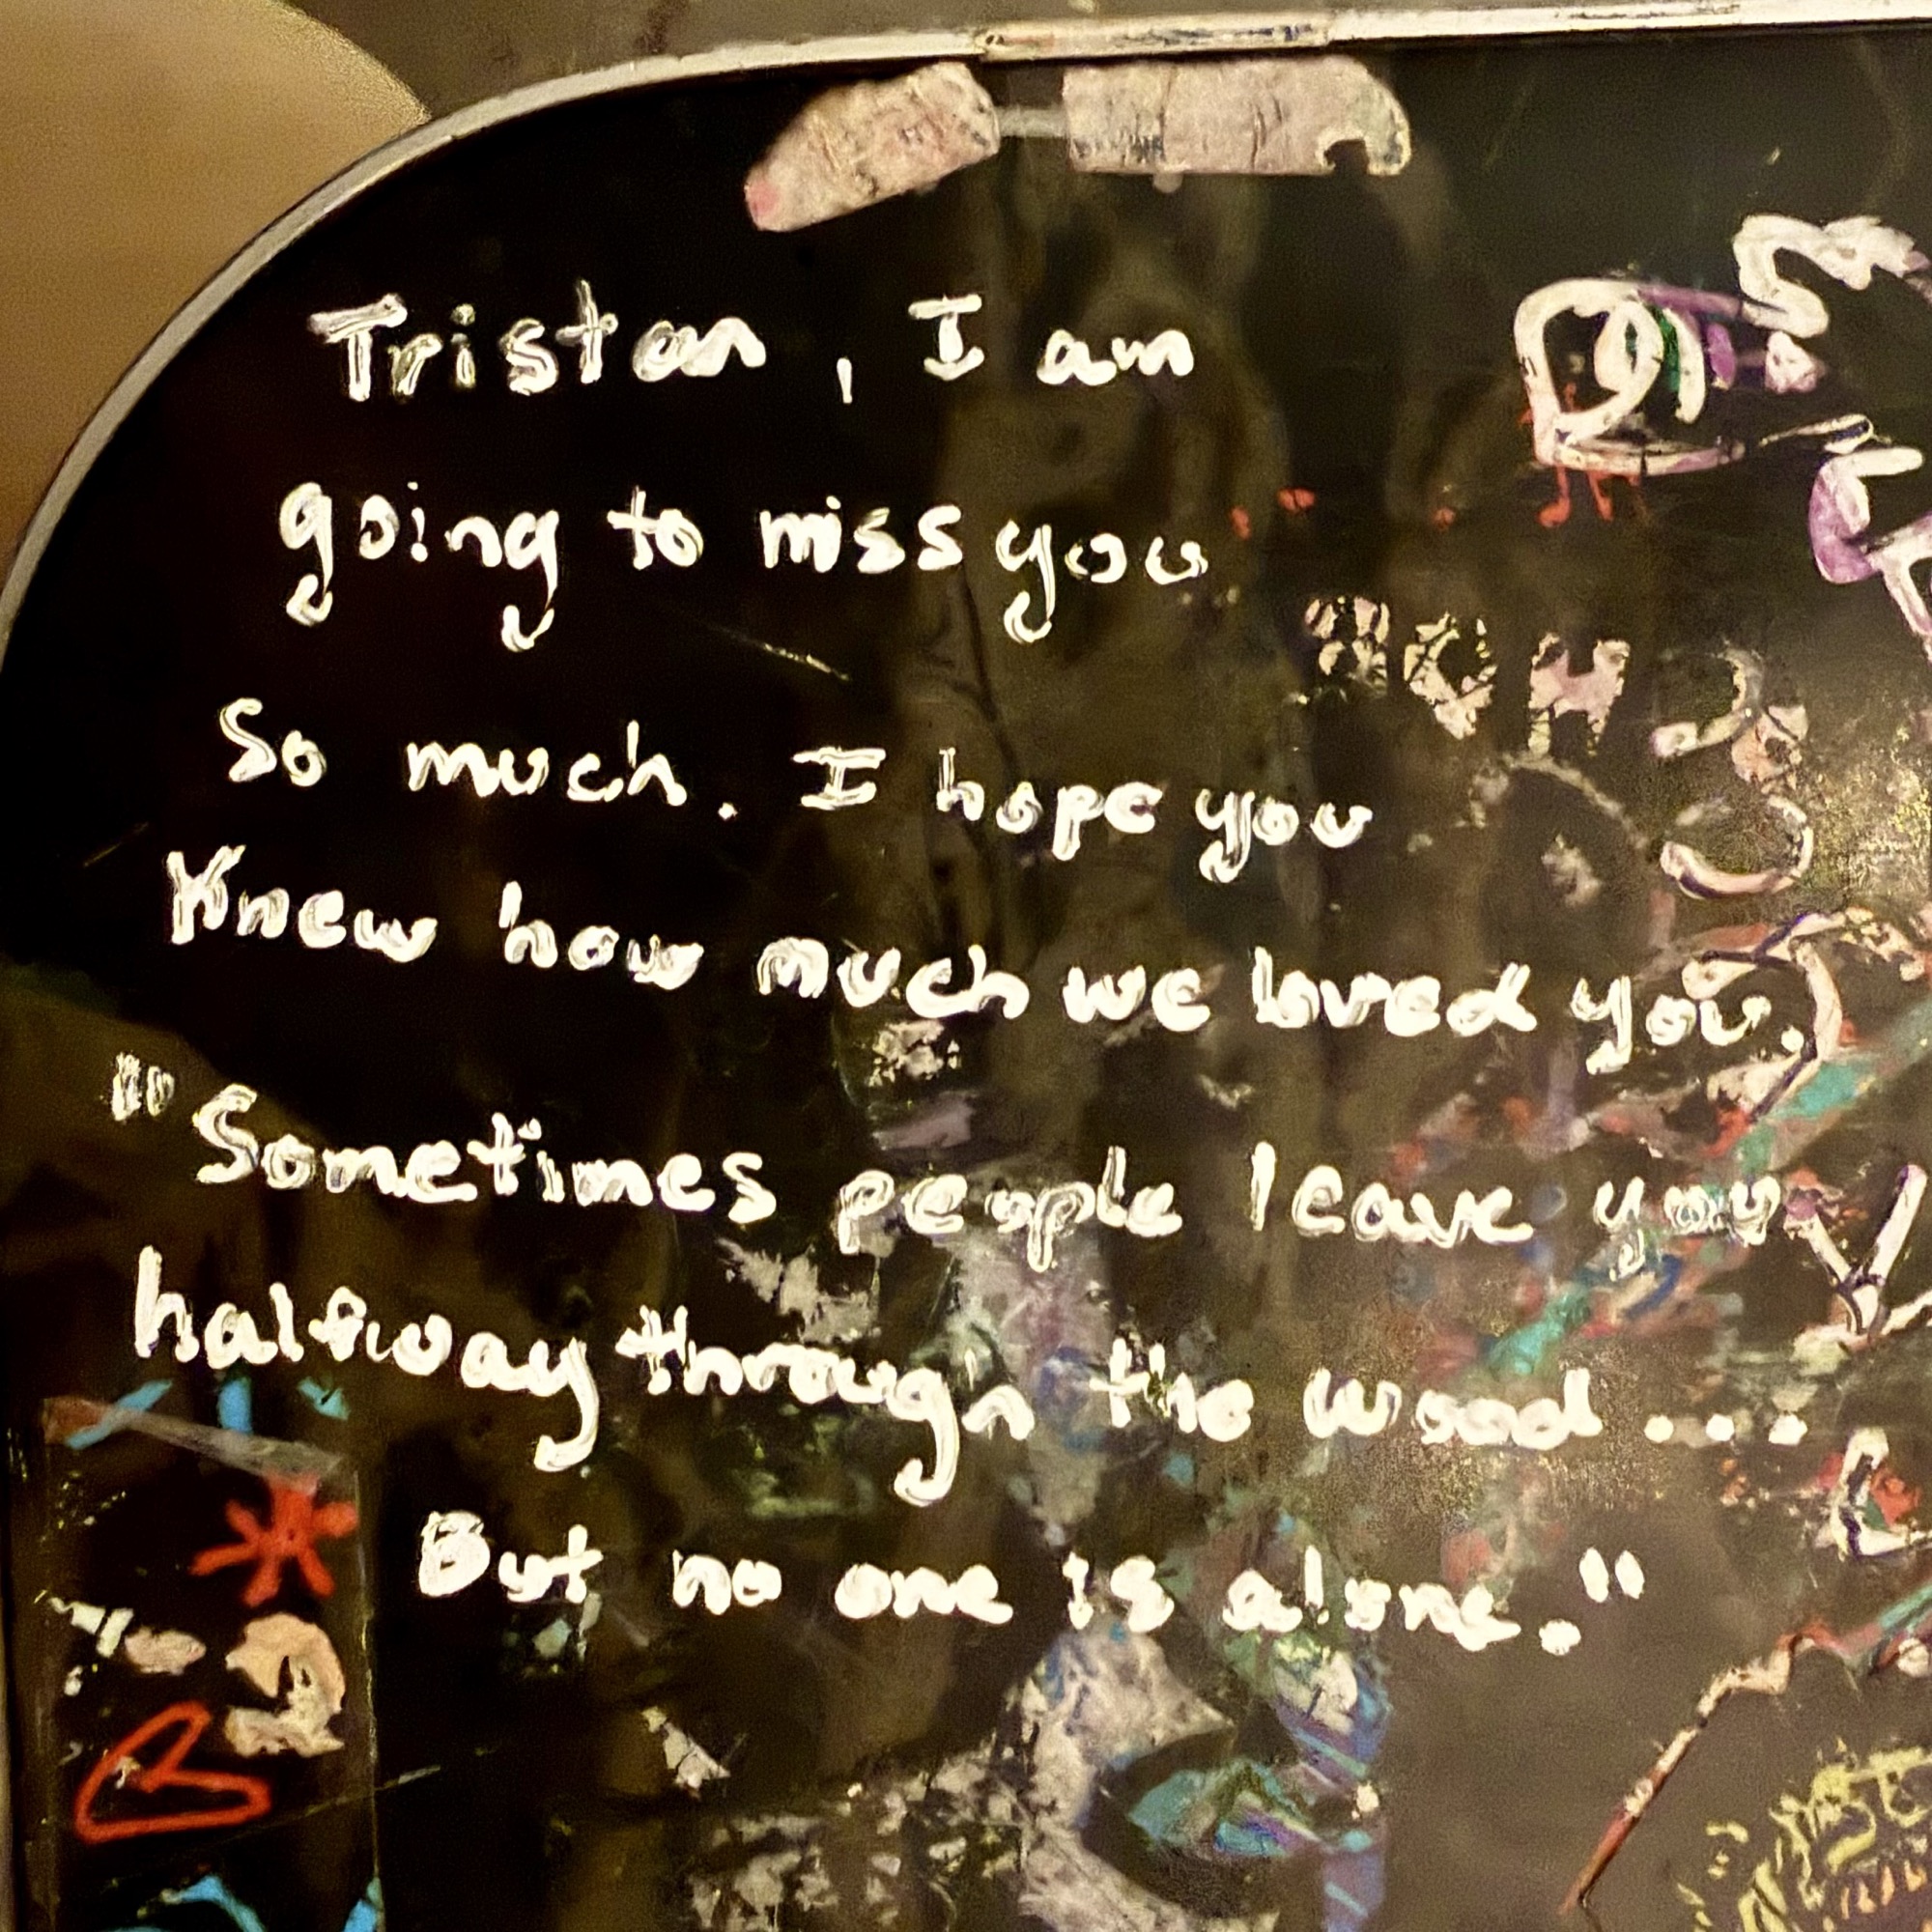 Tristan, I am
going to miss you
So much. I hope you
Knew how much we loved you.
"Sometimes people leave you
halfway through the wood ....
But no one is alone."